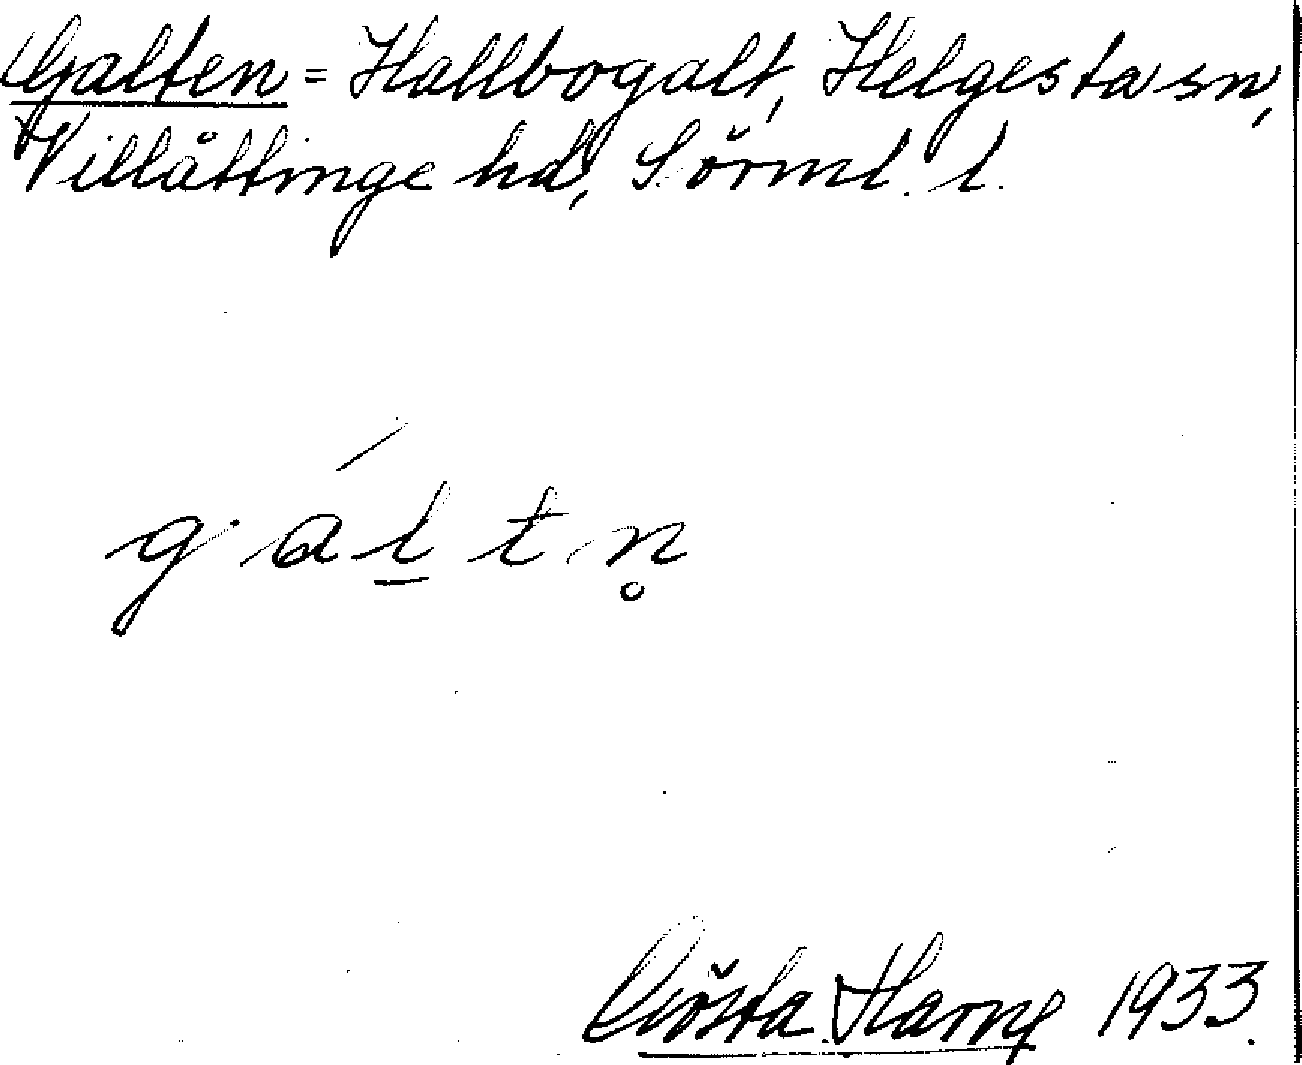 Galten = Hallbogalt, Helgesta sn,
Villåttinge hd, Sörml. l.
gáḻtn̥
Gösta Harng 1933.